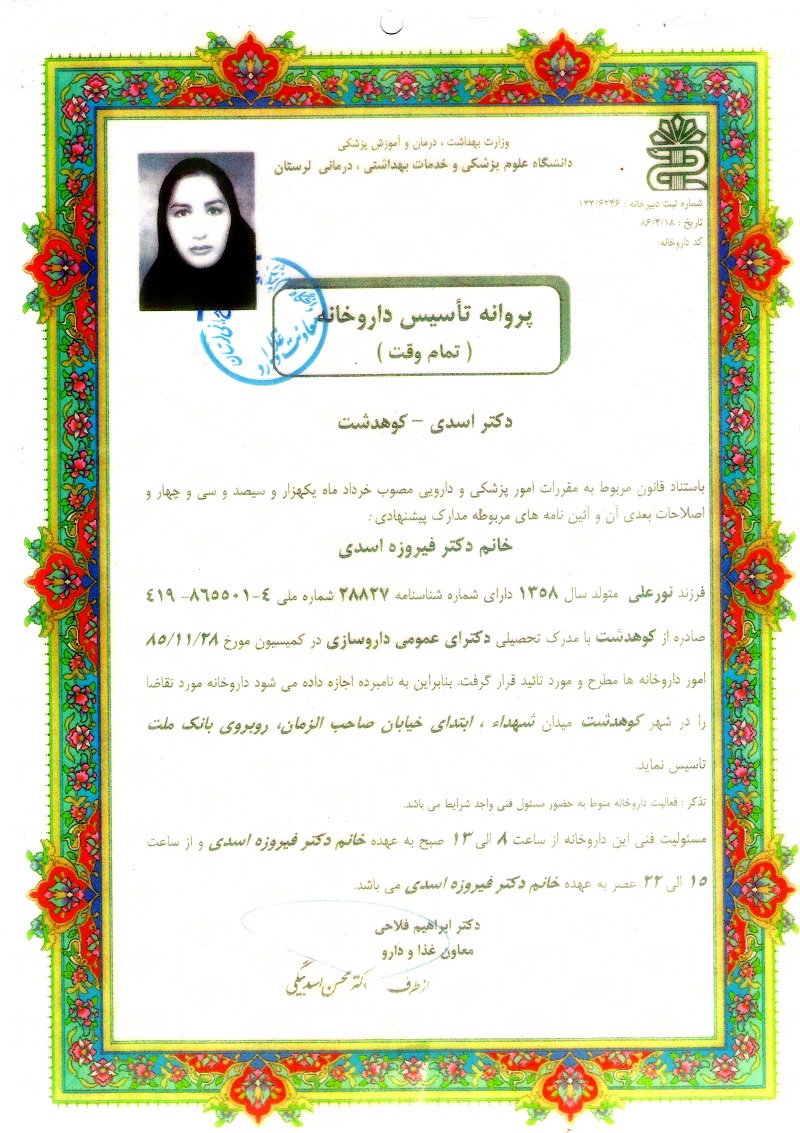 وزارت بهداشت ، درمان و آموزش پزشکی
دانشگاه علوم پزشکی و خدمات بهداشتی ، درمانی لرستان
شماره ثبت دبیرخانه : ۱۴۳/۶۲۴۶
تاریخ : ۸۶/۴/۱۸
کد داروخانه:
پروانه تأسیس داروخانه
( تمام وقت )
دکتر اسدی – کوهدشت
باستناد قانون مربوط به مقررات امور پزشکی و دارویی مصوب خرداد ماه یکهزار و سیصد و سی و چهار و
اصلاحات بعدی آن و آئین نامه های مربوطه مدارک پیشنهادی :
خانم دکتر فیروزه اسدی
فرزند نورعلی متولد سال ۱۳۵۸ دارای شماره شناسنامه ۲۸۸۲۷ شماره ملی ۴-۸۶۵۵۰۱- ۴۱۹
صادره از کوهدشت با مدرک تحصیلی دکترای عمومی داروسازی در کمیسیون مورخ ۸۵/۱۱/۲۸
امور داروخانه ها مطرح و مورد تائید قرار گرفت. بنابراین به نامبرده اجازه داده می شود داروخانه مورد تقاضا
را در شهر کوهدشت میدان شهداء ، ابتدای خیابان صاحب الزمان، روبروی بانک ملت
تاسیس نماید.
تذکر : فعالیت داروخانه منوط به حضور مسئول فنی واجد شرایط می باشد.
مسئولیت فنی این داروخانه از ساعت ۸ الی ۱۳ صبح به عهده خانم دکتر فیروزه اسدی و از ساعت
۱۵ الی ۲۲ عصر به عهده خانم دکتر فیروزه اسدی می باشد.
دکتر ابراهیم فلاحی
معاون غذا و دارو
از طرف دکتر محسن اسدبیگی